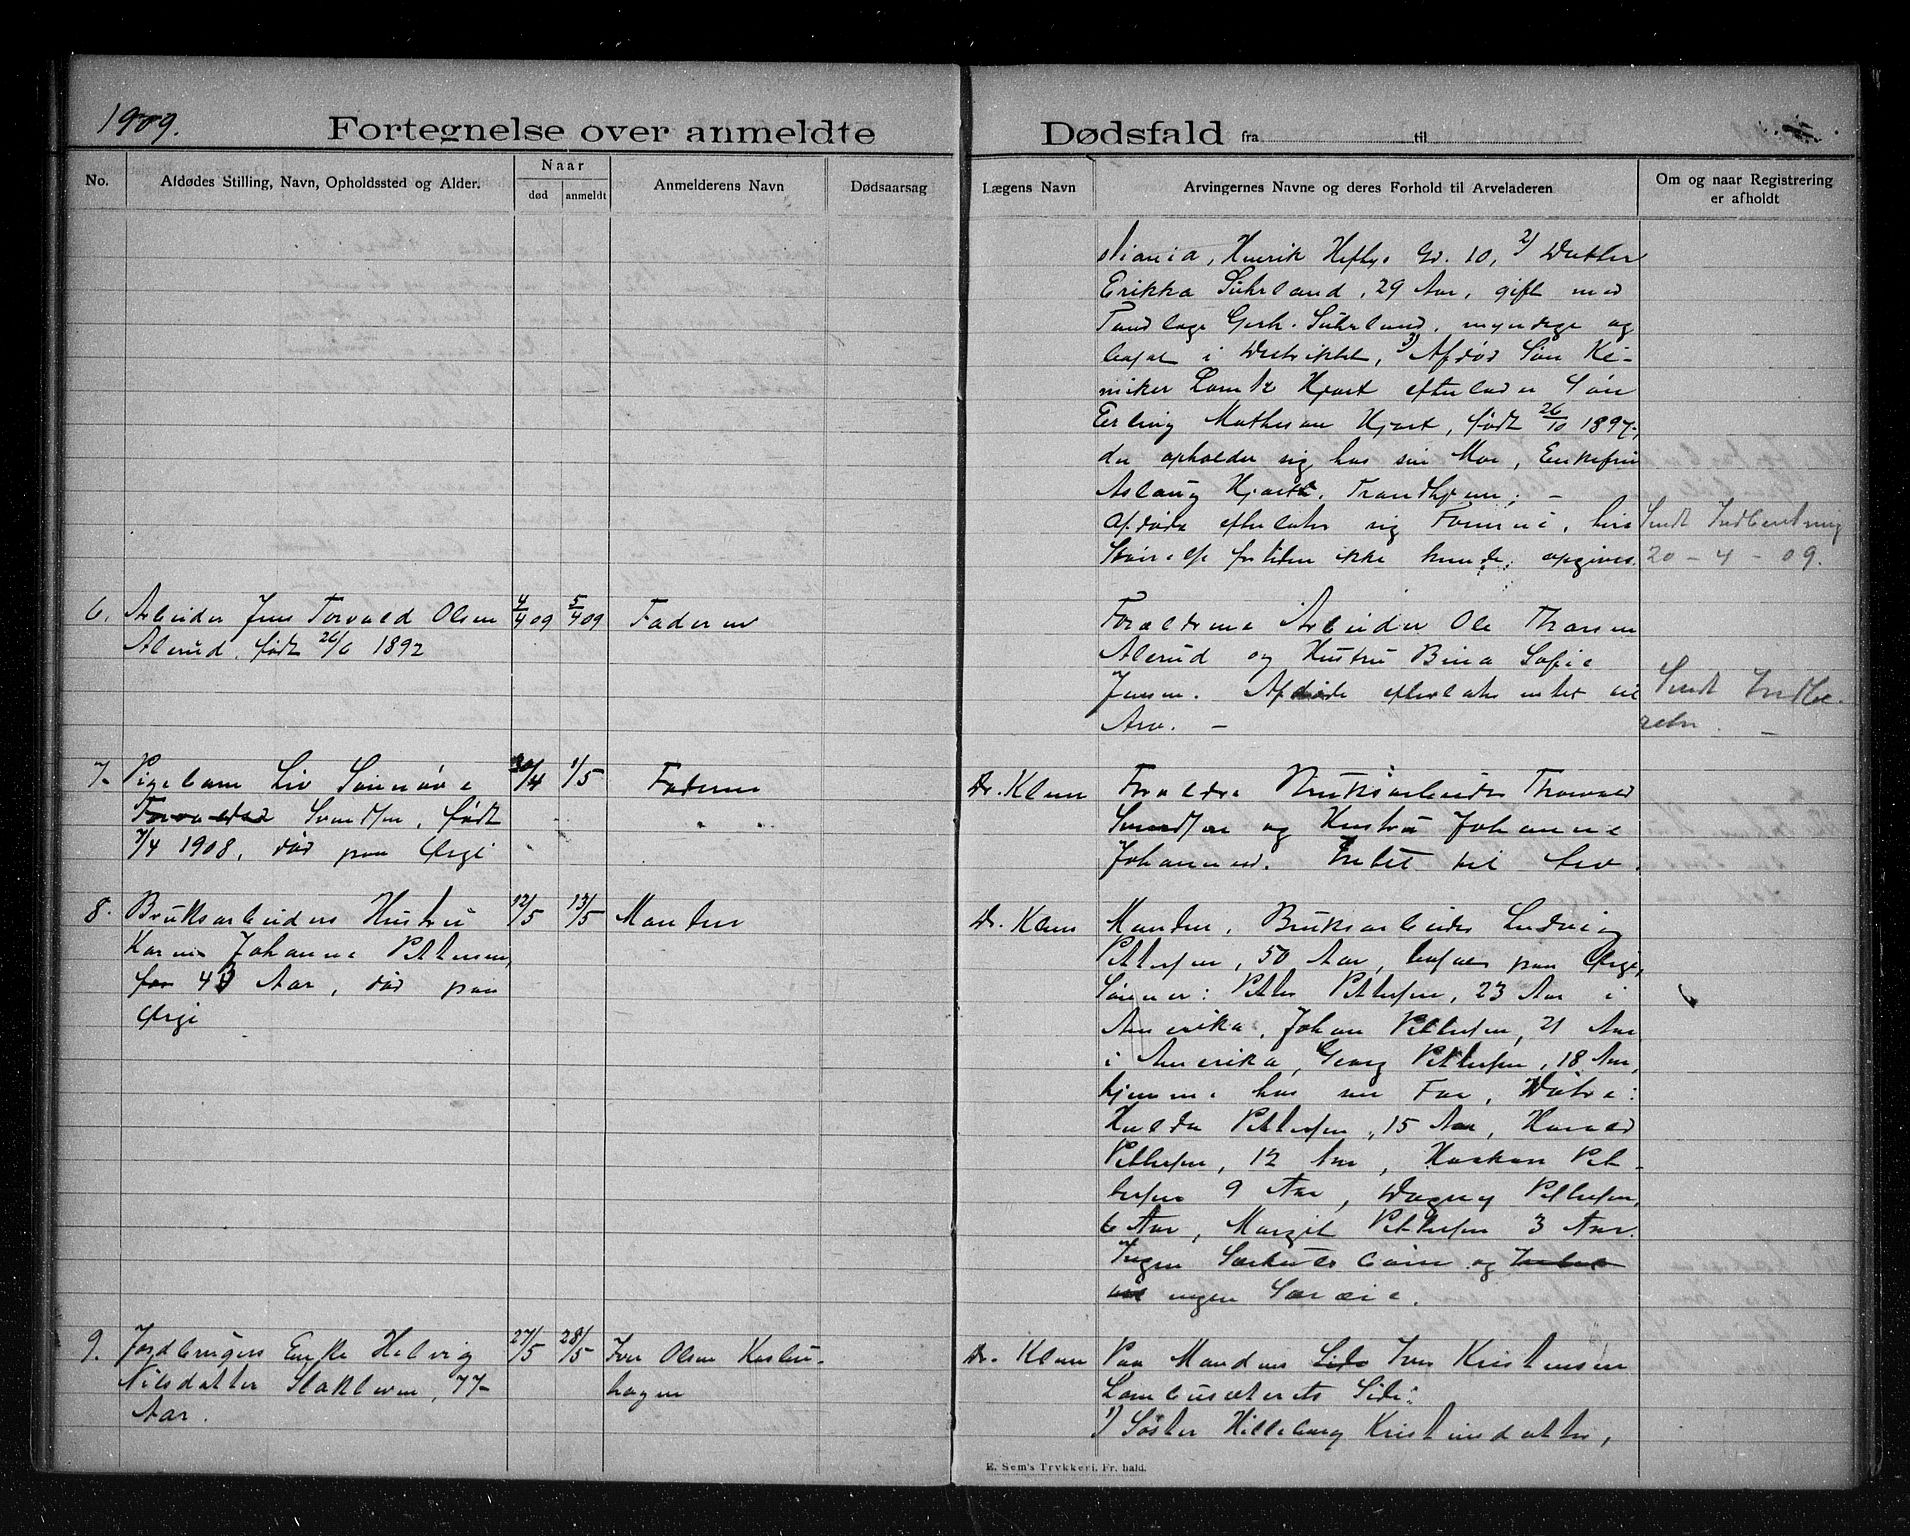 1909.
Fortegnelse over anmeldte
Dødsfald fra til
No.
Afdødes Stilling, Navn, Opholdssted og Alder.
Naar
død
anmeldt
Anmelderens Navn
Dødsaarsag
Lægens Navn
Arvingernes Navne og deres Forhold til Arveladeren
Om og naar Registrering
er afholdt
stiania, Henrik Heftys Gd. 10, 2) Datter
Erikka Suhrland, 29 Aar, gift med
Tandlæge Gerh. Suhrland, myndige og
bosat i Distriktet, 3) Afdød Søn Ke-
miker Hjort efterlader Søn
Erling Mathesen Hjort, født 26/10 1897,
der opholder sig hos sin Mor, Enkefru
Aslaug Hjort, Trondhjem, -
Afdøde efterlater sig Formue, hvis
Størrelse for tiden ikke kunde opgives.
Sendt Indberetning
20 - 4 - 09.
6. Arbeider Jens Torvald Olsen 4/4 09 5/4 09 Faderen
Alerud, født 26/6 1892
Forældrene Arbeider Ole Thorsen
Alerud og Hustru Bina Sofie
Jensen. Afdøde efterlater intet til
Arv. -
Sendt Indbe-
retn. -
7. Pigebarn Liv Sønnøve 30/4 1/5 Faderen
Torvaldsd Svendsen, født
7/4 1908, død paa Ørje
Dr. Klem
Forældre Bruksarbeider Thorvald
Svendsen og Hustru Johanne
Johannesd. Intet til Arv.
8. Bruksarbeiders Hustru 12/5 13/5 Manden
Karen Johanne Pettersen,
43 Aar, død paa
Ørje
Dr. Klem
Manden, Bruksarbeider Ludvig
Pettersen, 50 Aar, bosat paa Ørje,
Sønner: Petter Pettersen, 23 Aar i
Amerika, Johan Pettersen, 21 Aar
i Amerika, Georg Pettersen, 18 Aar,
hjemme hos sin Far, Døtre:
Hulda Pettersen, 15 Aar, Harald
Pettersen, 12 Aar, Haakon Pet-
tersen 9 Aar, Dagny Pettersen,
6 Aar, Margit Pettersen 3 Aar.
Ingen Særkuldsbørn og Intet
ingen Særeie.
9. Jordbrugers Enke Helvig 27/5 28/5 Iver Olsen
Nilsdatter Slakteren, 77
Aar.
hagen
Dr. Klem
Paa Mandens Side Iver Kristensen
Side:
1) Søster Hilleborg Kristensdatter,
E. Sem's Trykkeri, Fr. hald.